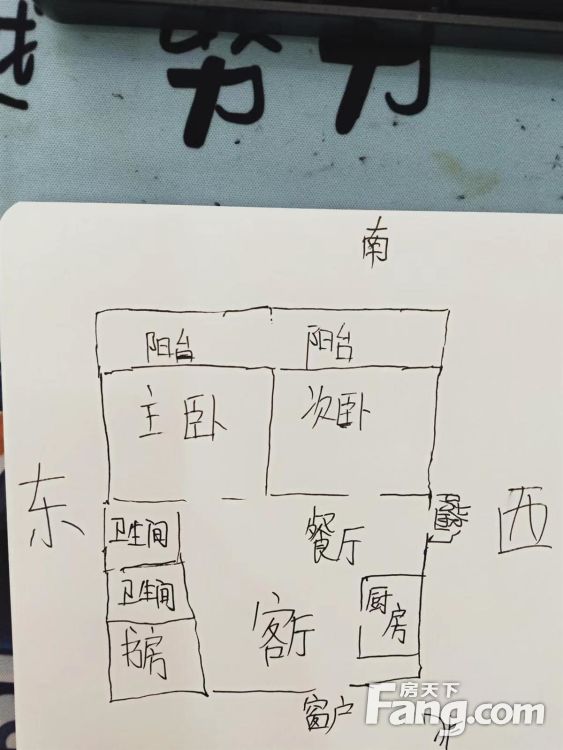 努力
南
阳台 阳台
主卧 次卧
东 西
卫生间 餐厅
卫生间 厨房
书房 客厅
窗户
房天下
Fang.com